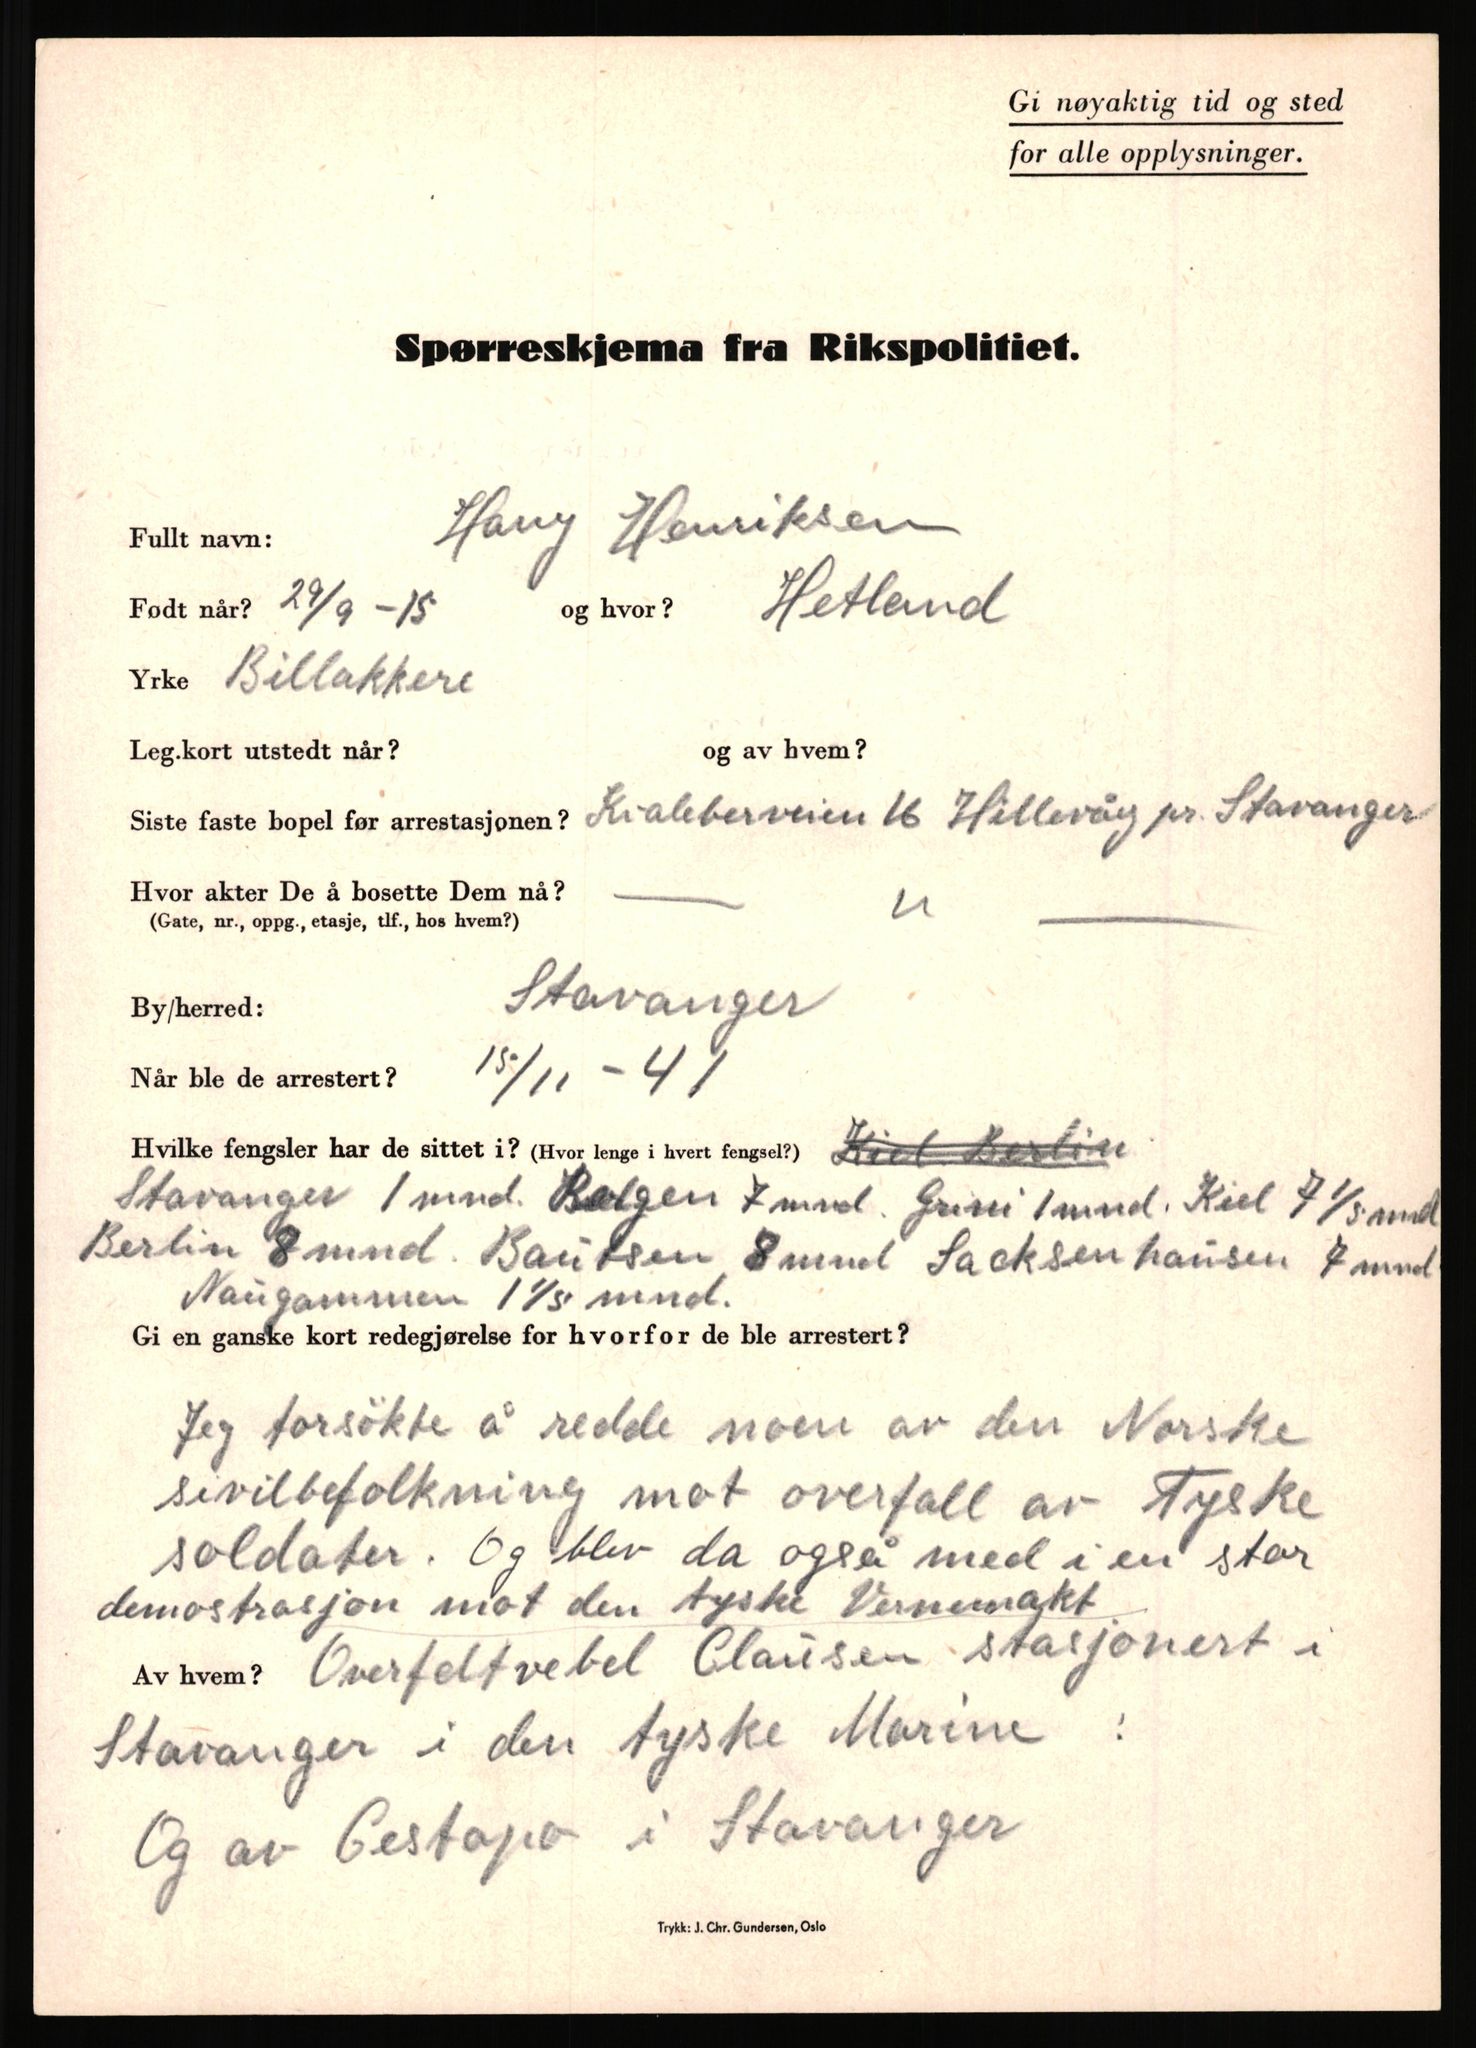 Gi nøyaktig tid og sted
for alle opplysninger.
Spørreskjema fra Rikspolitiet.
Fullt navn: Harry Henriksen
Født når? 29/9 -15 og hvor? Hetland
Yrke Billakkere
Leg.kort utstedt når? og av hvem?
Siste faste bopel før arrestasjonen? Kialeberveien 16 Hillevåg pr. Stavanger
Hvor akter De å bosette Dem nå? — " —
(Gate, nr., oppg., etasje, tlf., hos hvem?)
By/herred: Stavanger
Når ble de arrestert? 15/11 - 41
Hvilke fengsler har de sittet i? (Hvor lenge i hvert fengsel?) Kiel Berlin
Stavanger 1 mnd. Bolgen 7 mnd. Grini 1 mnd. Kiel 7 1/5 mnd
Berlin 8 mnd. Bautsen 8 mnd Sacksenhausen 7 mnd
Naugammen 1 1/5 mnd.
Gi en ganske kort redegjørelse for hvorfor de ble arrestert?
Jeg forsökte å redde noen av den Norske
sivilbefolkning mot overfall av Tyske
soldater. Og blev da også med i en stor
demostrasjon mot den tyske Vernemakt
Av hvem? Overfeltvebel Clausen stasjonert i
Stavanger i den tyske Marine :
Og av Gestapo i Stavanger
Trykk: J. Chr. Gundersen, Oslo